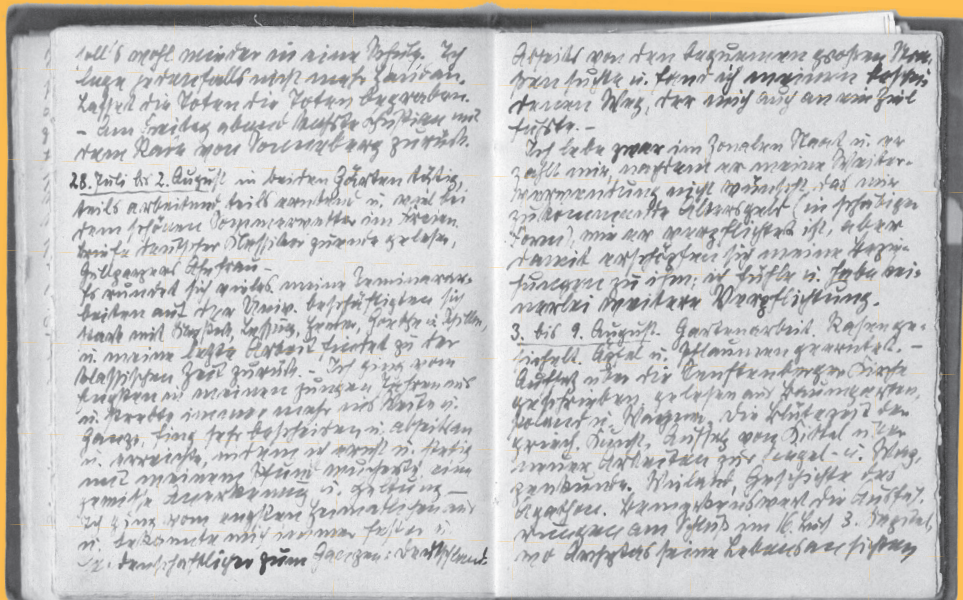 soll's wohl wieder in eine Schule. Ich
lege jedenfalls nicht mehr Hand an.
Lasset die Toten die Toten begraben.
– Am Freitag abend kehrte Christian mit
dem Rade von Sonneberg zurück.
28. Juli bis 2. August in beiden Gärten tätig,
teils arbeitend teils erntend u. viel bei
dem schönen Sommerwetter im Freien
Briefe deutscher Klassiker zuende gelesen,
Grillparzers Ahnfrau –
Es rundet sich vieles, meine Seminarar-
beiten auf der Univ. beschäftigten sich
stark mit Lessing, Herder, Goethe u. Schiller,
u. meine letzte Arbeit findet zu der
klassischen Zeit zurück. – Ich ging vom
Engsten in meinen jungen Jahren aus
u. strebte immer mehr ins Weite u.
Ganze, fing sehr bescheiden u. abseitig an
u. erreichte, indem ich ernst u. stetig
mit meinem Pfund wucherte eine
gewisse Anerkennung u. Geltung –
Ich ging vom engsten Heimatlichen aus
u. bekannte mich immer fester u.
leidenschaftlicher zum Ganzen: Deutschland.
Abseits von den bequemen großen Stra-
ßen suchte u. fand ich meinen beschei-
denen Weg, der mich auch an ein Ziel
führte. –
Ich lebe zwar im zonalen Staat u. er
zahlt mir, nachdem er meine Weiter-
verwendung nicht wünscht, das mir
zukommende Altersgeld (in schäbiger
Form), wie er verpflichtet ist, aber
damit erschöpfen sich meine Bezie-
hungen zu ihm; ich fühle u. habe kei-
nerlei weitere Verpflichtung.
3. bis 9. August. Gartenarbeit. Rasen ge-
sichelt. Äpfel u. Pflaumen geerntet. –
Aufsatz über die Senftenberger Kirche
geschrieben, gelesen aus Baumgarten,
Poland u. Wagner, Die Blütezeit der
griech. Kunst, Aufsatz von Kittel über
neuere Arbeiten zur Siegel- u. Wap-
penkunde. Wieland, Geschichte des
Agathon. Bemerkenswert die Ausfüh-
rungen am Schluß im 16. Buch 3. Kapitel,
wo Archytas seine Lebensansichten